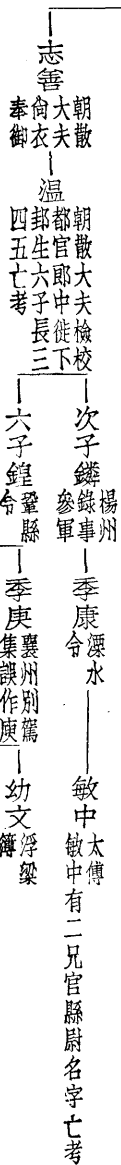 志善
朝散
大夫
尚衣
奉御
温
朝散大夫檢校
都官郎中徙下
邽生六子長三
四五亡考
次子鏻
楊州
錄事
參軍
季康
溧水
令
敏中
太傅
敏中有二兄官縣尉名字亡考
六子鍠
鞏縣
令
季庚
襄州別駕
集誤作庾
幼文
浮梁
簿